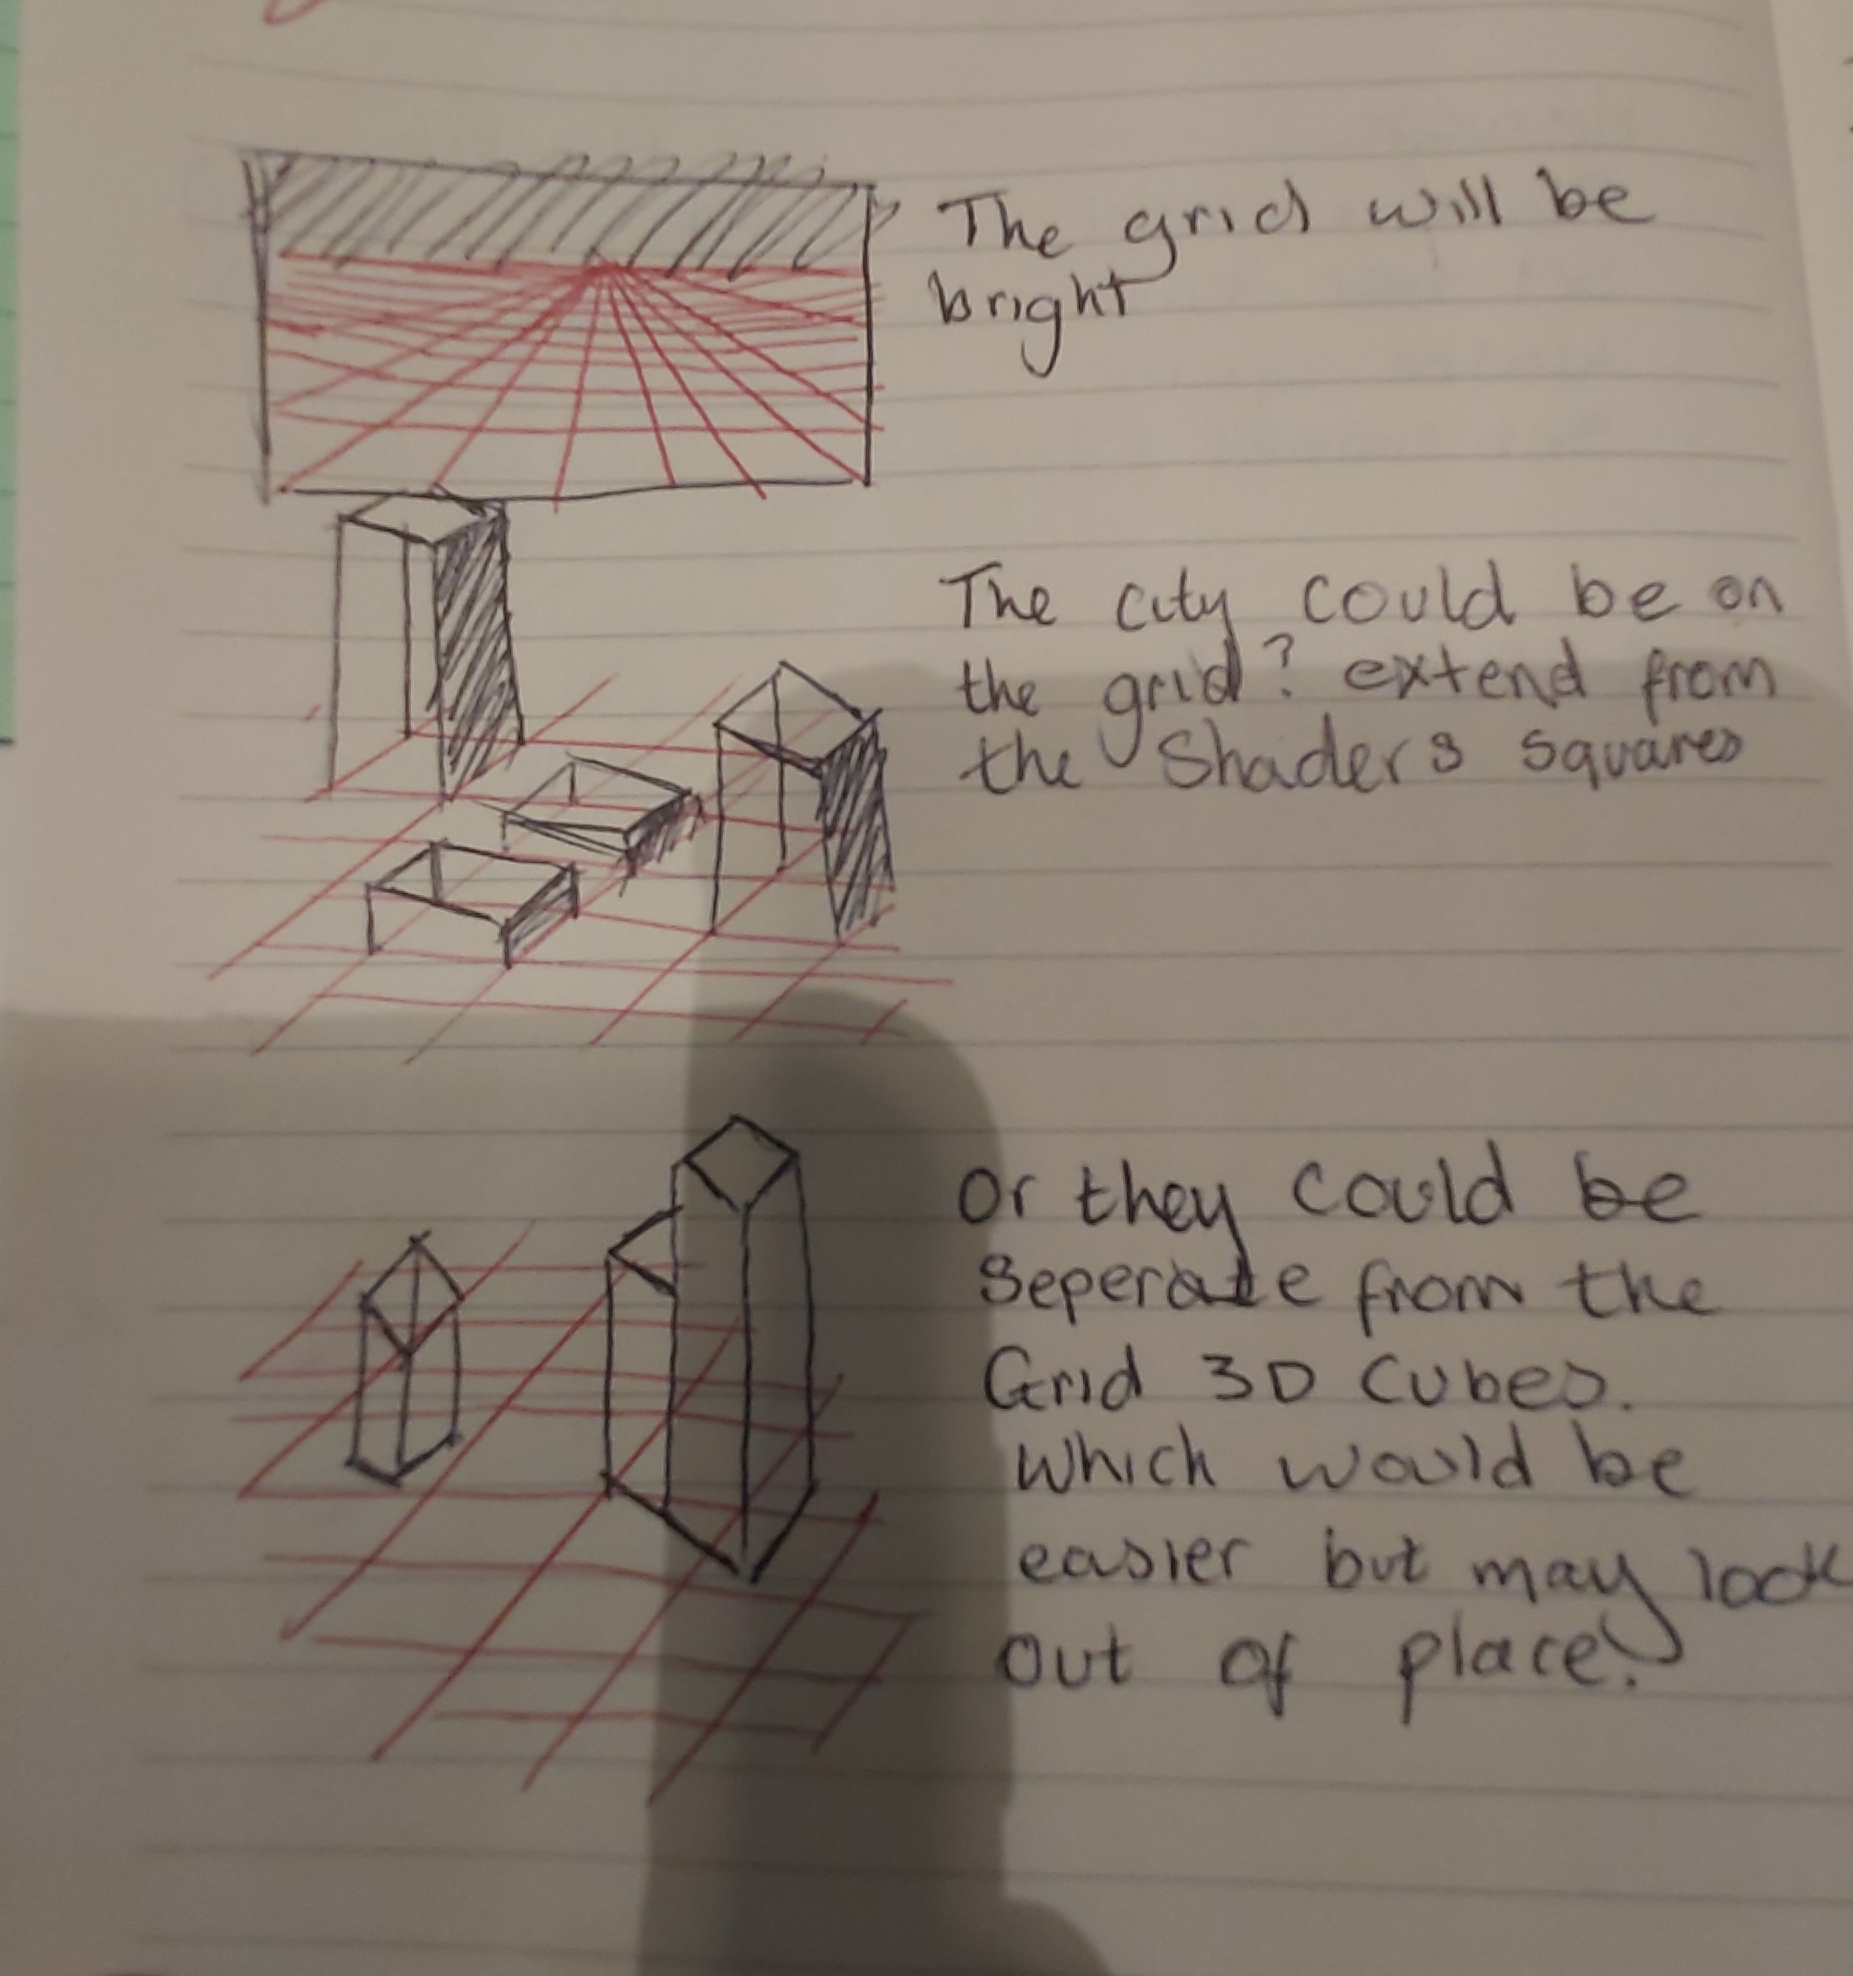 The grid will be
bright
The city could be on
the grid? extend from
the Shaders squares
Or they could be
Seperate from the
Grid 3D Cubes.
Which would be
easier but may look
out of place?